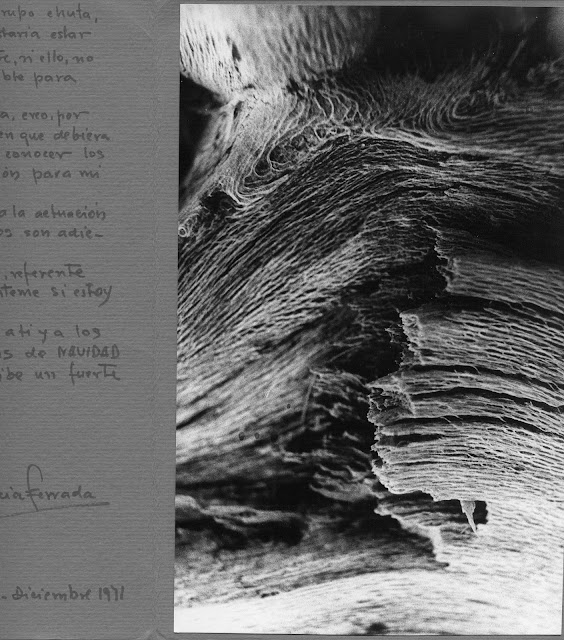 rupo chuta,
staría estar
te, ni ello, no
ible para
a, creo, por
en que debiera
conocer los
ión para mi
o la actuación
os son adie-
, referente
ateme si estoy
a ti y a los
as de NAVIDAD
ibe un fuerte
cia Ferrada
. diciembre 1971